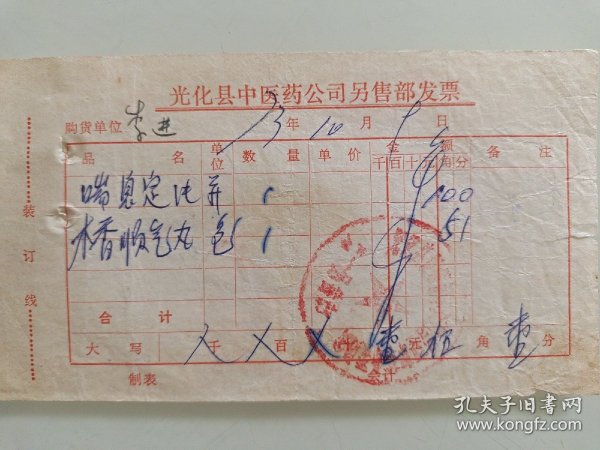 光化县中医药公司另售部发票
购货单位 李进 年 10 月 日
品名 单位 数量 单价 金额 备注
千 百 十 元 角 分
喘息定 1 1 00
木香顺气丸 包 1 51
合计
大写 千 百 十 壹 元 伍 角 壹 分
制表 会计
装订线
孔夫子旧书网
www.kongfz.com